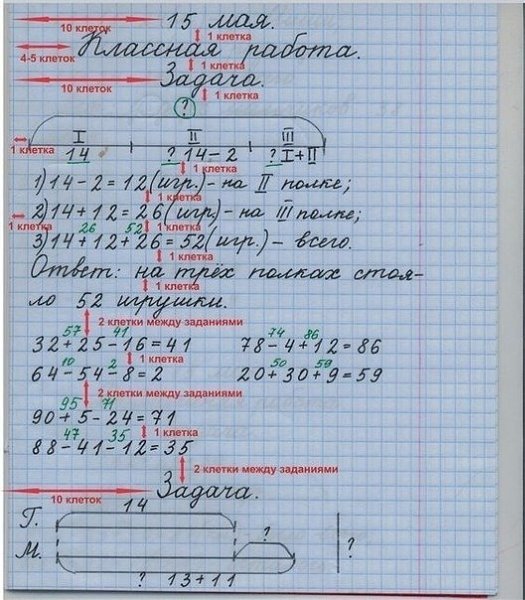 10 клеток 15 мая.
1 клетка
4-5 клеток Классная работа.
1 клетка
10 клеток Задача.
1 клетка
?
I II III
1 клетка 14 ? 14-2 ? I+II
1 клетка
1) 14-2=12(игр.)- на II полке;
1 клетка
2) 14+12=26(игр.)- на III полке;
1 клетка 26 52 1 клетка
3) 14+12+26=52(игр.)- всего.
1 клетка
Ответ: на трёх полках стоя-
1 клетка
ло 52 игрушки.
2 клетки между заданиями
57 41 74 86
32+25-16=41 78-4+12=86
1 клетка
10 2 50 59
64-54-8=2 20+30+9=59
2 клетки между заданиями
95 71
90+5-24=71
47 35 1 клетка
88-41-12=35
2 клетки между заданиями
10 клеток Задача.
14
Г. ?
М. ?
? 13+11